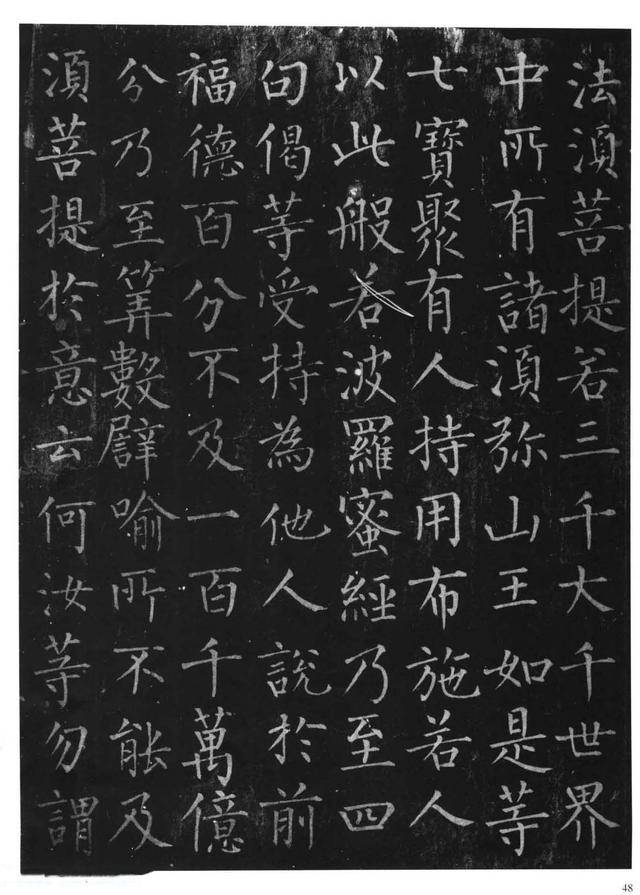 法須菩提若三千大千世界
中所有諸須弥山王如是等
七寶聚有人持用布施若人
以此般若波羅蜜經乃至四
句偈等受持為他人說於前
福德百分不及一百千萬億
分乃至筭數譬喻所不能及
須菩提於意云何汝等勿謂
48